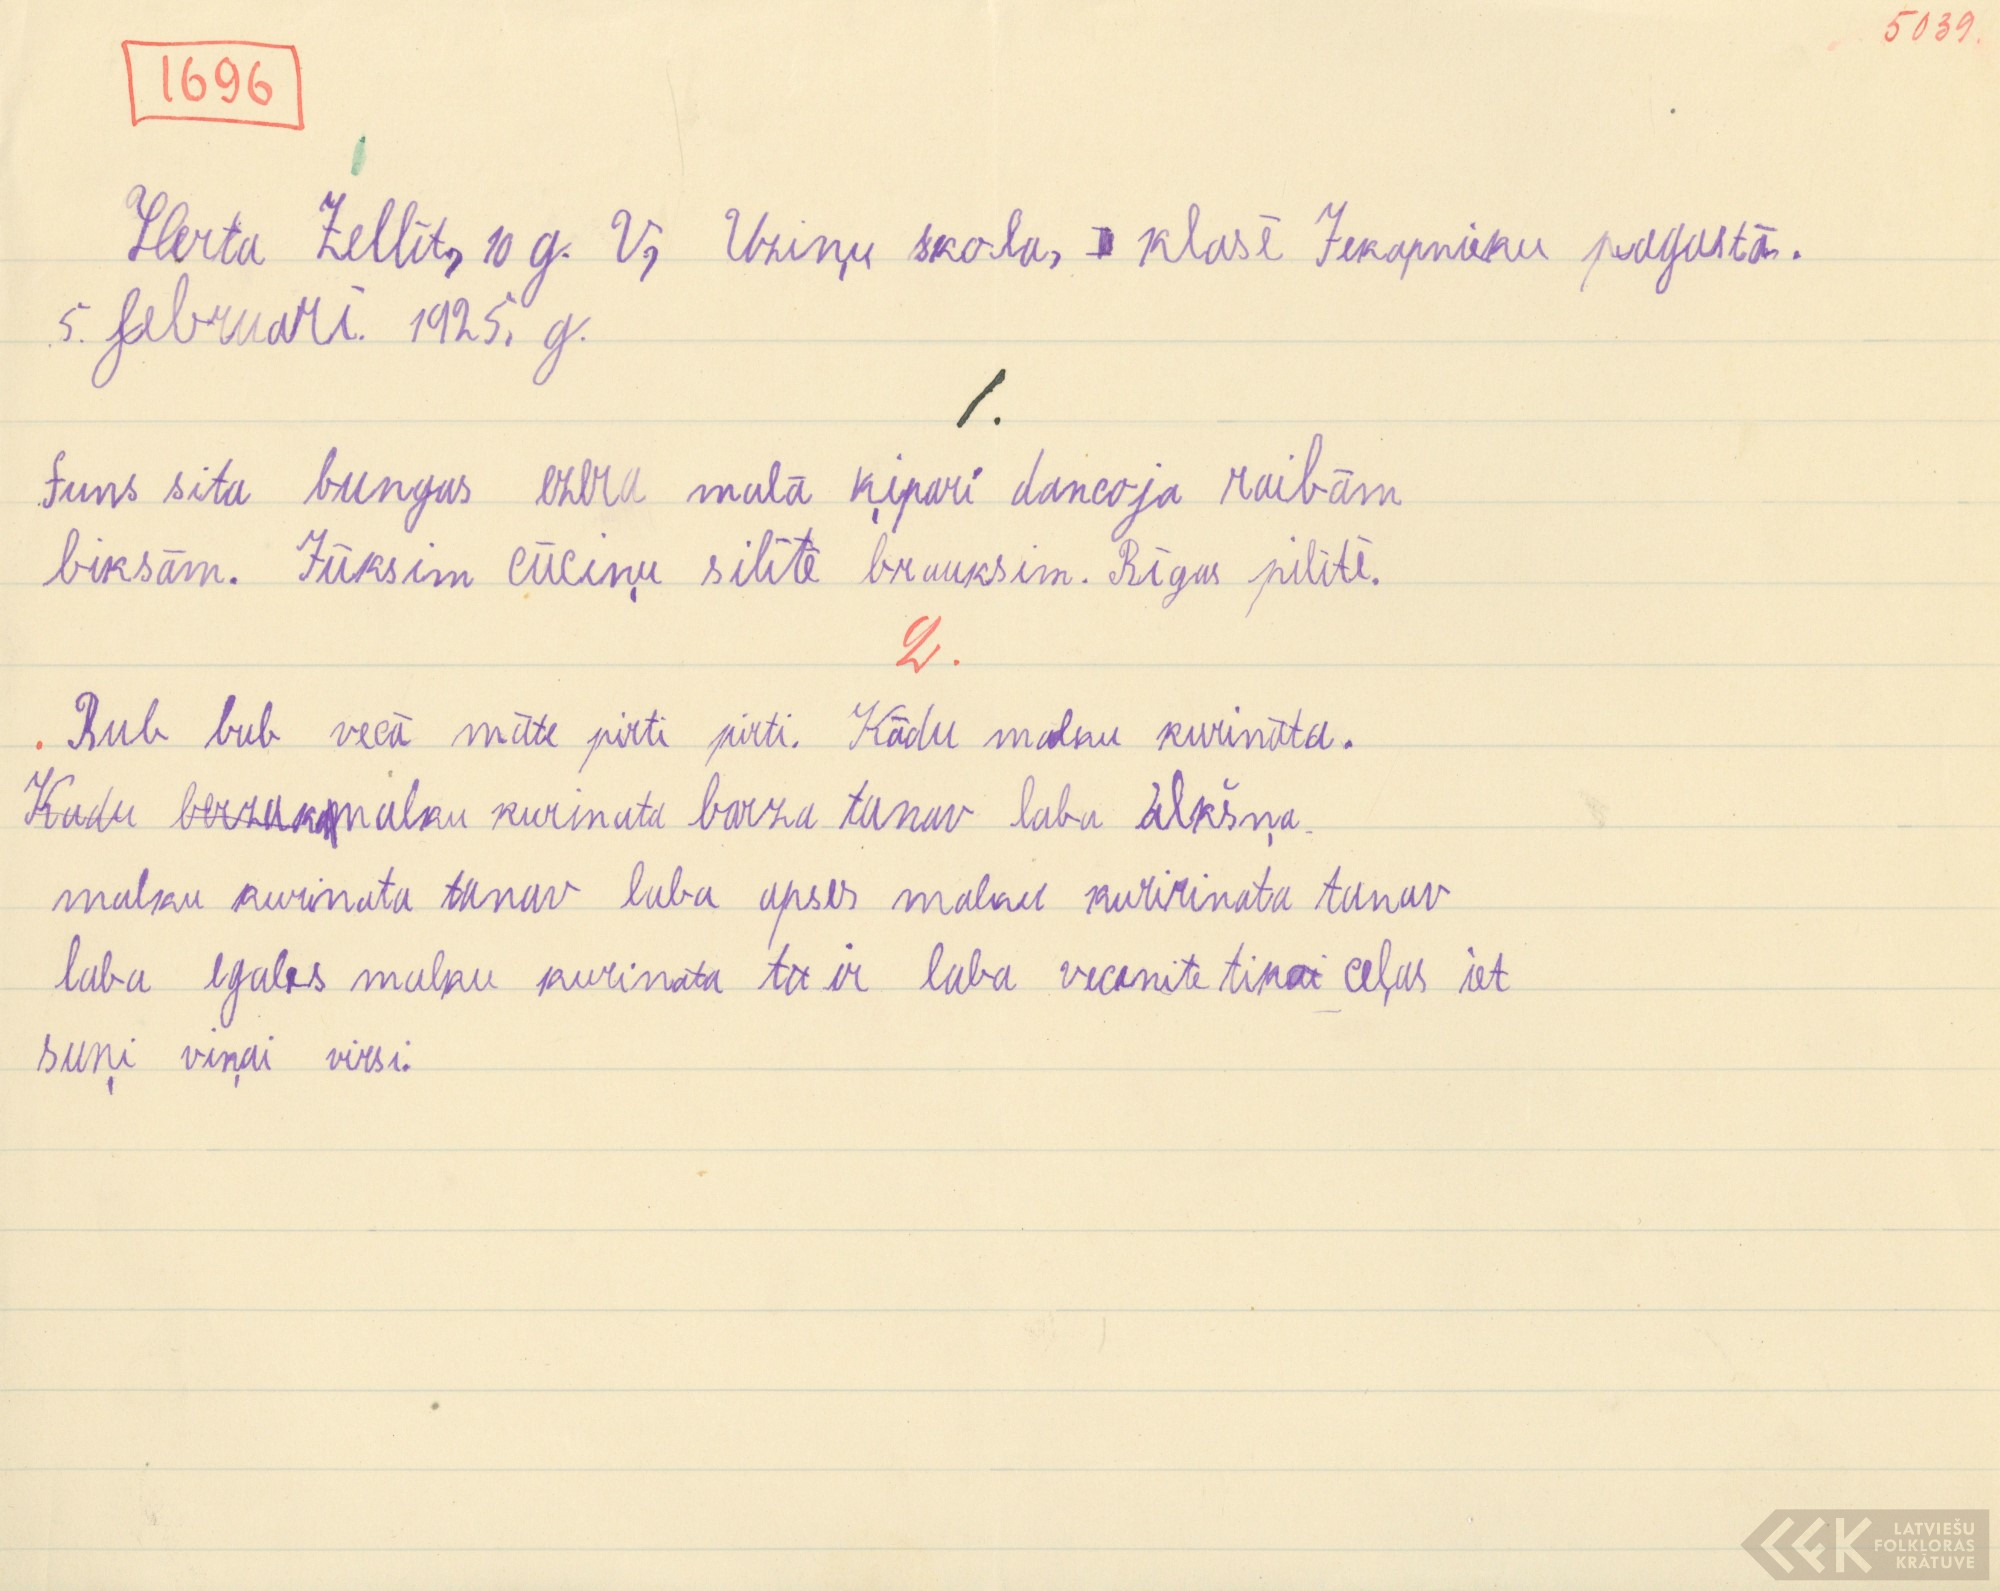 5039.
1696
Herta Zellit, 10 g. V, Uziņu skola, I klasē Jekapnieku pagastā.
5. februarī. 1925. g.
1.
Juns sita bungas ezera malā ķipari dancoja raibām
biksām. Jūksim cūciņu silītē brauksim. Rīgas pilītē.
2.
Bub bub vecā māte pirti pirti. Kādu malku kurināta.
Kadu malku kurinata barza tanav laba alkšņa
malku kurinata tanav laba apses malku kuririnata tanav
laba egales malku kurinata ta ir laba vecenite tikai ceļas iet
suņi viņai virsi.
LATVIEŠU
FOLKLORAS
KRĀTUVE